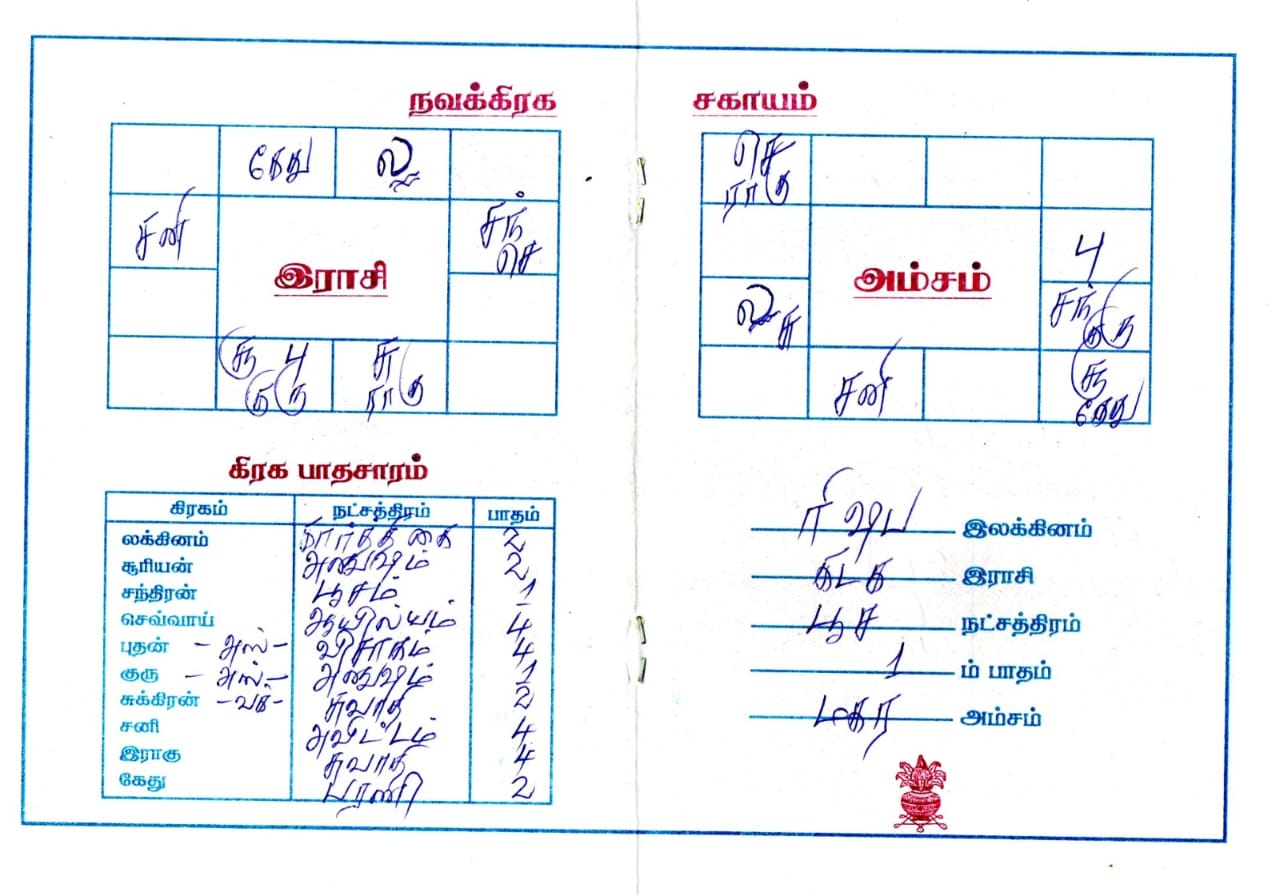 நவக்கிரக சகாயம்
கேது ல
சனி சந்
செ
இராசி
சூ பு சு
குரு ராகு
செ
ராகு
பு
அம்சம்
ல சு சந்
குரு
சனி சூ
கேது
கிரக பாதசாரம்
கிரகம் நட்சத்திரம் பாதம்
லக்கினம் கார்த்திகை 2
சூரியன் அனுஷம் 2
சந்திரன் பூசம் 1
செவ்வாய் ஆயில்யம் 4
புதன் - அஸ் - விசாகம் 4
குரு - அஸ் - அனுஷம் 1
சுக்கிரன் - வக் - சுவாதி 2
சனி அவிட்டம் 4
இராகு சுவாதி 4
கேது பரணி 2
ரிஷப இலக்கினம்
கடக இராசி
பூச நட்சத்திரம்
1 ம் பாதம்
மகர அம்சம்